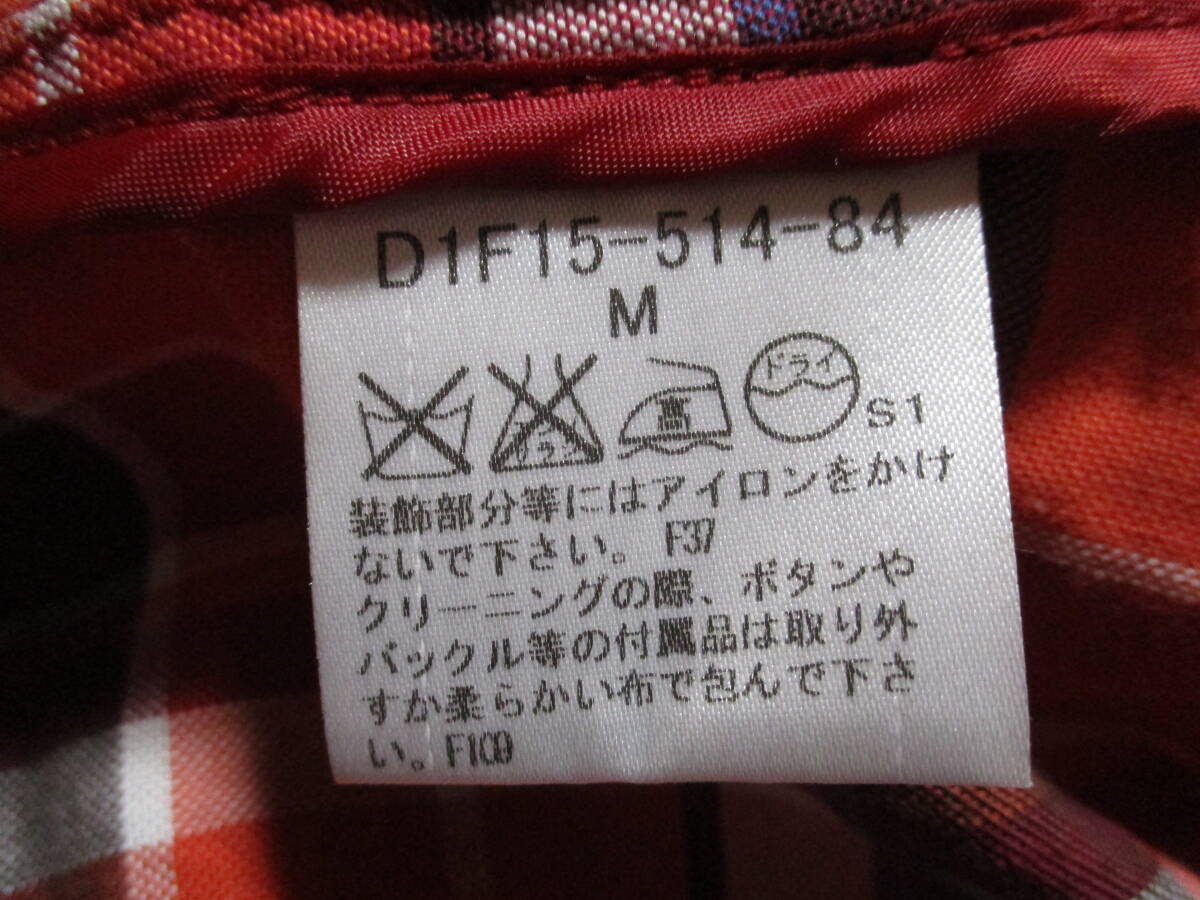 D1F15-514-84
M
エンソ
サラシ
高
ドライ
S1
装飾部分等にはアイロンをかけ
ないで下さい。 F37
クリーニングの際、ボタンや
バックル等の付属品は取り外
すか柔らかい布で包んで下さ
い。F109